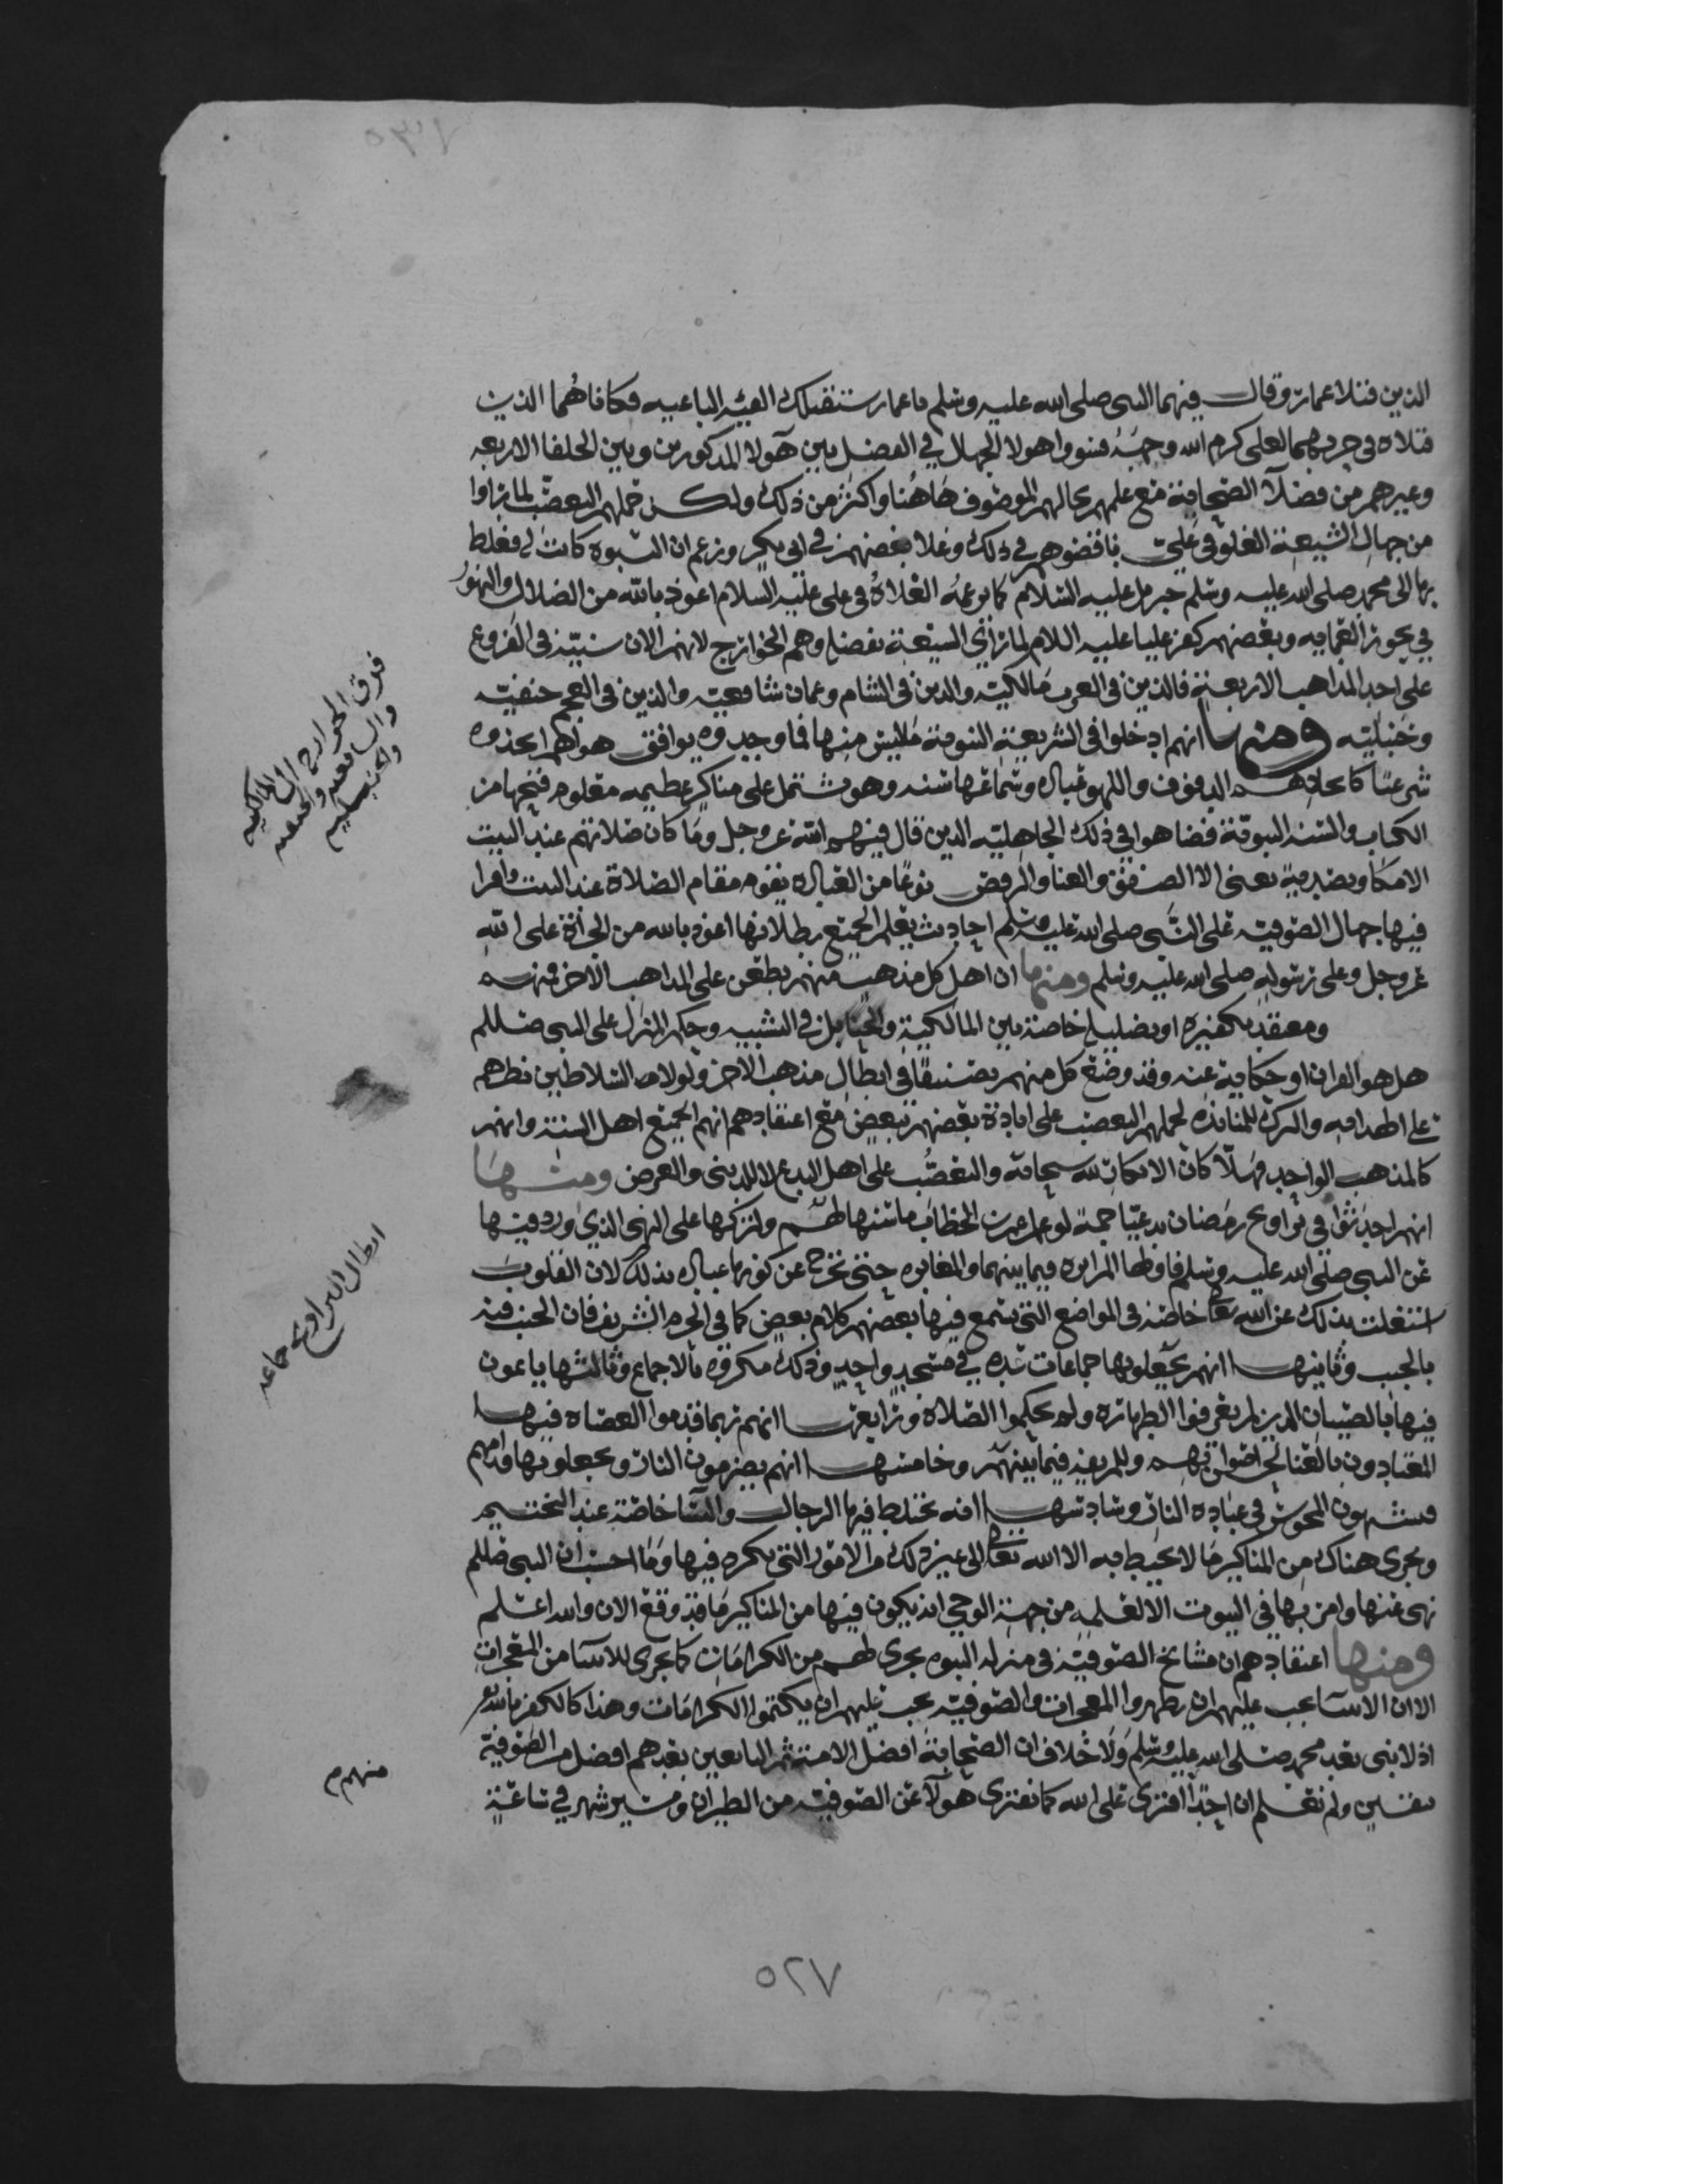 الذين قتلا عمار وقال فيهما النبي صلى الله عليه وسلم يا عمار ستقتلك الفئه الباغيه فكانا هما الذين
قتلاه في حربهما لعلي كرم الله وجهه فسووا هولا الجهال في الفضل بين هولا المذكورين وبين الخلفا الاربعه
وغيرهم من فضلا الصحابة مع علمهم بحالهم الموصوف هاهنا واكثر من ذلك ولكن حملهم التعصب لما راوا
من جهال الشيعة الغلو في علي ناقضوهم في ذلك وغلا بعضهم في ابي بكر وزعم ان النبوه كانت له فغلط
بها الى محمد صلى الله عليه وسلم جبريل عليه السلام كما يزعمه الغلاة في علي عليه السلام اعوذ بالله من الضلال والتهور
في بحور العمايه وبعضهم كفر عليا عليه السلام لما راى الشيعة تفضله وهم الخوارج لانهم الان سنية في الفروع
على احد المذاهب الاربعة فالذين في العرب مالكية والذين في الشام وعمان شافعية والذين في العجم حنفية
وحنبلية ومنها انهم ادخلوا في الشريعة النبوية ما ليس منها فما وجدوه يوافق هواهم اتخذوه
شرعا كاتخاذهم الدفوف واللهو عباده وسماعها سنه وهو مشتمل على مناكير عظيمه معلوم قبحها من
الكتاب والسنه النبوية فضاهوا في ذلك الجاهلية الذين قال فيهم الله عز وجل وما كان صلاتهم عند البيت
الا مكا وتصدية يعني الا الصفق والغنا والرقص نوعا من العباده يقوم مقام الصلاة عند البيت وافترا
فيها جهال الصوفية على النبي صلى الله عليه وسلم احاديث يعلم الجميع بطلانها اعوذ بالله من الجرأة على الله
عز وجل وعلى رسوله صلى الله عليه وسلم ومنها ان اهل كل مذهب منهم يطعن على المذاهب الاخر منهم
ومعتقد تكفيره او تضليله خاصة بين المالكية والحنابل في التشبيه وحكم المنزل على النبي صللم
هل هو القران او حكاية عنه وقد وضع كل منهم تصنيفا في ابطال مذهب الاخر ولولا السلاطين
على والترك للمنابذه لحملهم التعصب على ابادة بعضهم لبعض مع اعتقادهم انهم الجميع اهل السنة وانهم
كالمذهب الواحد فهلا كان الانكار لله سبحانه والتعصب على اهل البدع لا للدنيا والعرض ومنها
انهم احدثوا في تراويح رمضان بدعيا جمة لو علم عمر بن الخطاب ما سنها لهم ولتركها على النهي الذي ورد فيها
عن النبي صلى الله عليه وسلم فاولها المراياه فيما بينهما والمفاخره حتى تخرج عن كونها عباده بذلك لان القلوب
اشتغلت بذلك عن الله تعالى خاصة في المواضع التي يسمع فيها بعضهم كلام بعض كما في الحرم الشريف فان الجنب فيه
بالجنب وثانيها انهم يجعلونها جماعات عده في مسجد واحد وذلك مكروه بالاجماع وثالثها ياتمون
فيها بالصبيان الذين لم يعرفوا الطهاره ولم يحكموا الصلاة ورابعها انهم ربما قدموا العصاه فيها
المعتادون بالغنا لحسن اصواتهم فيما بينهم وخامسها انهم يضرمون النار ويجعلونها قدامهم
فيشبهون المجوس في عباده النار وسادسها انه تختلط فيها الرجال والنسا خاصة عند التختيم
ويجري هناك من المناكير ما لا يحيط به الا الله تعالى الى غير ذلك من الامور التي تكره فيها وما احسب ان النبي صللم
نهى عنها وامر بها في البيوت الا لعلمه من جهة الوحي انه يكون فيها من المناكير ما قد وقع الان والله اعلم
ومنها اعتقادهم ان مشايخ الصوفية في منزلة النبوه يجري لهم من الكرامات كما يجري للانبيا من المعجزات
الا ان الانبيا يجب عليهم ان يظهروا المعجزات والصوفية يجب عليهم ان يكتموا الكرامات وهذا كالكفر بالله
اذ لا نبي بعد محمد صلى الله عليه وسلم ولا خلاف ان الصحابة افضل الامة ثم التابعين بعدهم افضل من الصوفية
بيقين ولم نعلم ان احدا افترى على الله كما تفترى هولا عن الصوفية من الطيران ومسير شهر في ساعة
فرق الخوارج المالكيه
والشافعيه والحنفيه
والحنبليه
ابطال التراويح جماعه
منهم م
٧٢٥